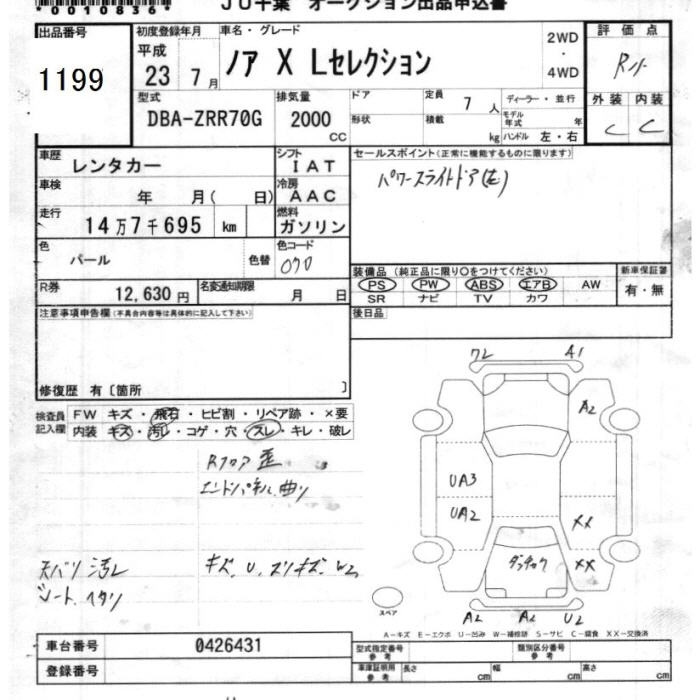 *00108369*
JU千葉 オークション出品申込書
出品番号 初度登録年月 車名・グレード 評価点
平成 2WD・4WD
1199 23 7月 ノア X Lセレクション
型式 排気量 ドア 定員 7 人 ディーラー・並行 外装 内装
DBA-ZRR70G 2000 CC 形状 積載 kg モデル年式 年 ハンドル 左・右 C C
車歴 レンタカー シフト IAT セールスポイント(正常に機能するものに限ります)
車検 年 月( 日) 冷房 AAC パワースライドドア(左)
走行 14万7千695 km 燃料 ガソリン
色 パール 色替 色コード 070
装備品 (純正品に限り○をつけてください) 新車保証書
R券 12,630円 名変通知期限 月 日 PS PW ABS エアB AW 有・無
SR ナビ TV カワ
注意事項申告欄(不具合内容等は具体的に記入して下さい) 後日品
修復歴 有〔箇所 〕
検査員記入欄 FW キズ・飛石・ヒビ割・リペア跡・×要
内装 キズ・汚レ・コゲ・穴・スレ・キレ・破レ
A1
A2
Rフロア 歪
エンドパネル 曲り
UA3
UA2
XX
XX
天バリ 汚レ キズ、U、スリキズ、W2
シート ヘタリ
スペア
A2 A2 U2
A-キズ E-エクボ U-凹み W-補修跡 S-サビ C-腐食 XX-交換済
車台番号 0426431 型式指定番号 参考 類別区分番号 参考
登録番号 車庫証明用 参考 長さ cm 幅 cm 高さ cm